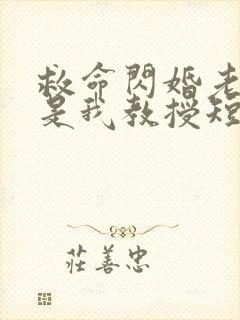 救命閃婚老
是我教授短
莊善忠